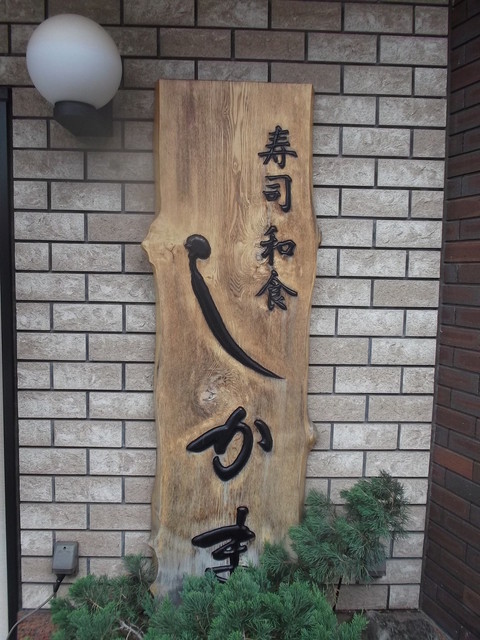 寿司 和食
しかま